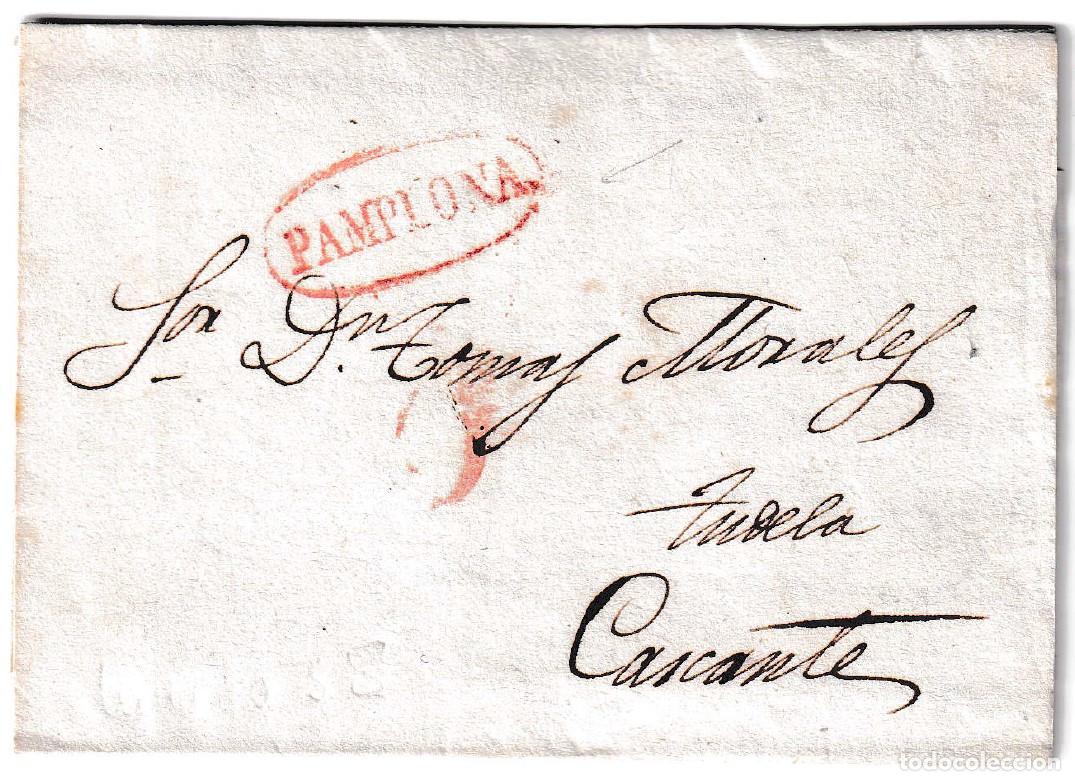 PAMPLONA
Sor Dn. Tomas Morales
Tudela
Cascante
todocoleccion